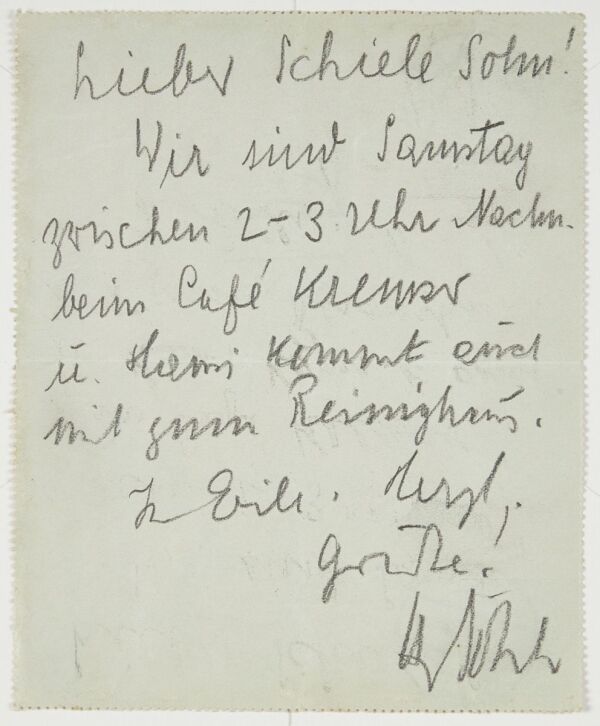 Lieber Schiele Sohn!
Wir sind Samstag
zwischen 2-3 Uhr Nachm.
beim Café Kremser
u. Hansi kommt auch
mit zum Reininghaus.
In Eile. Herzl.
Grüße!